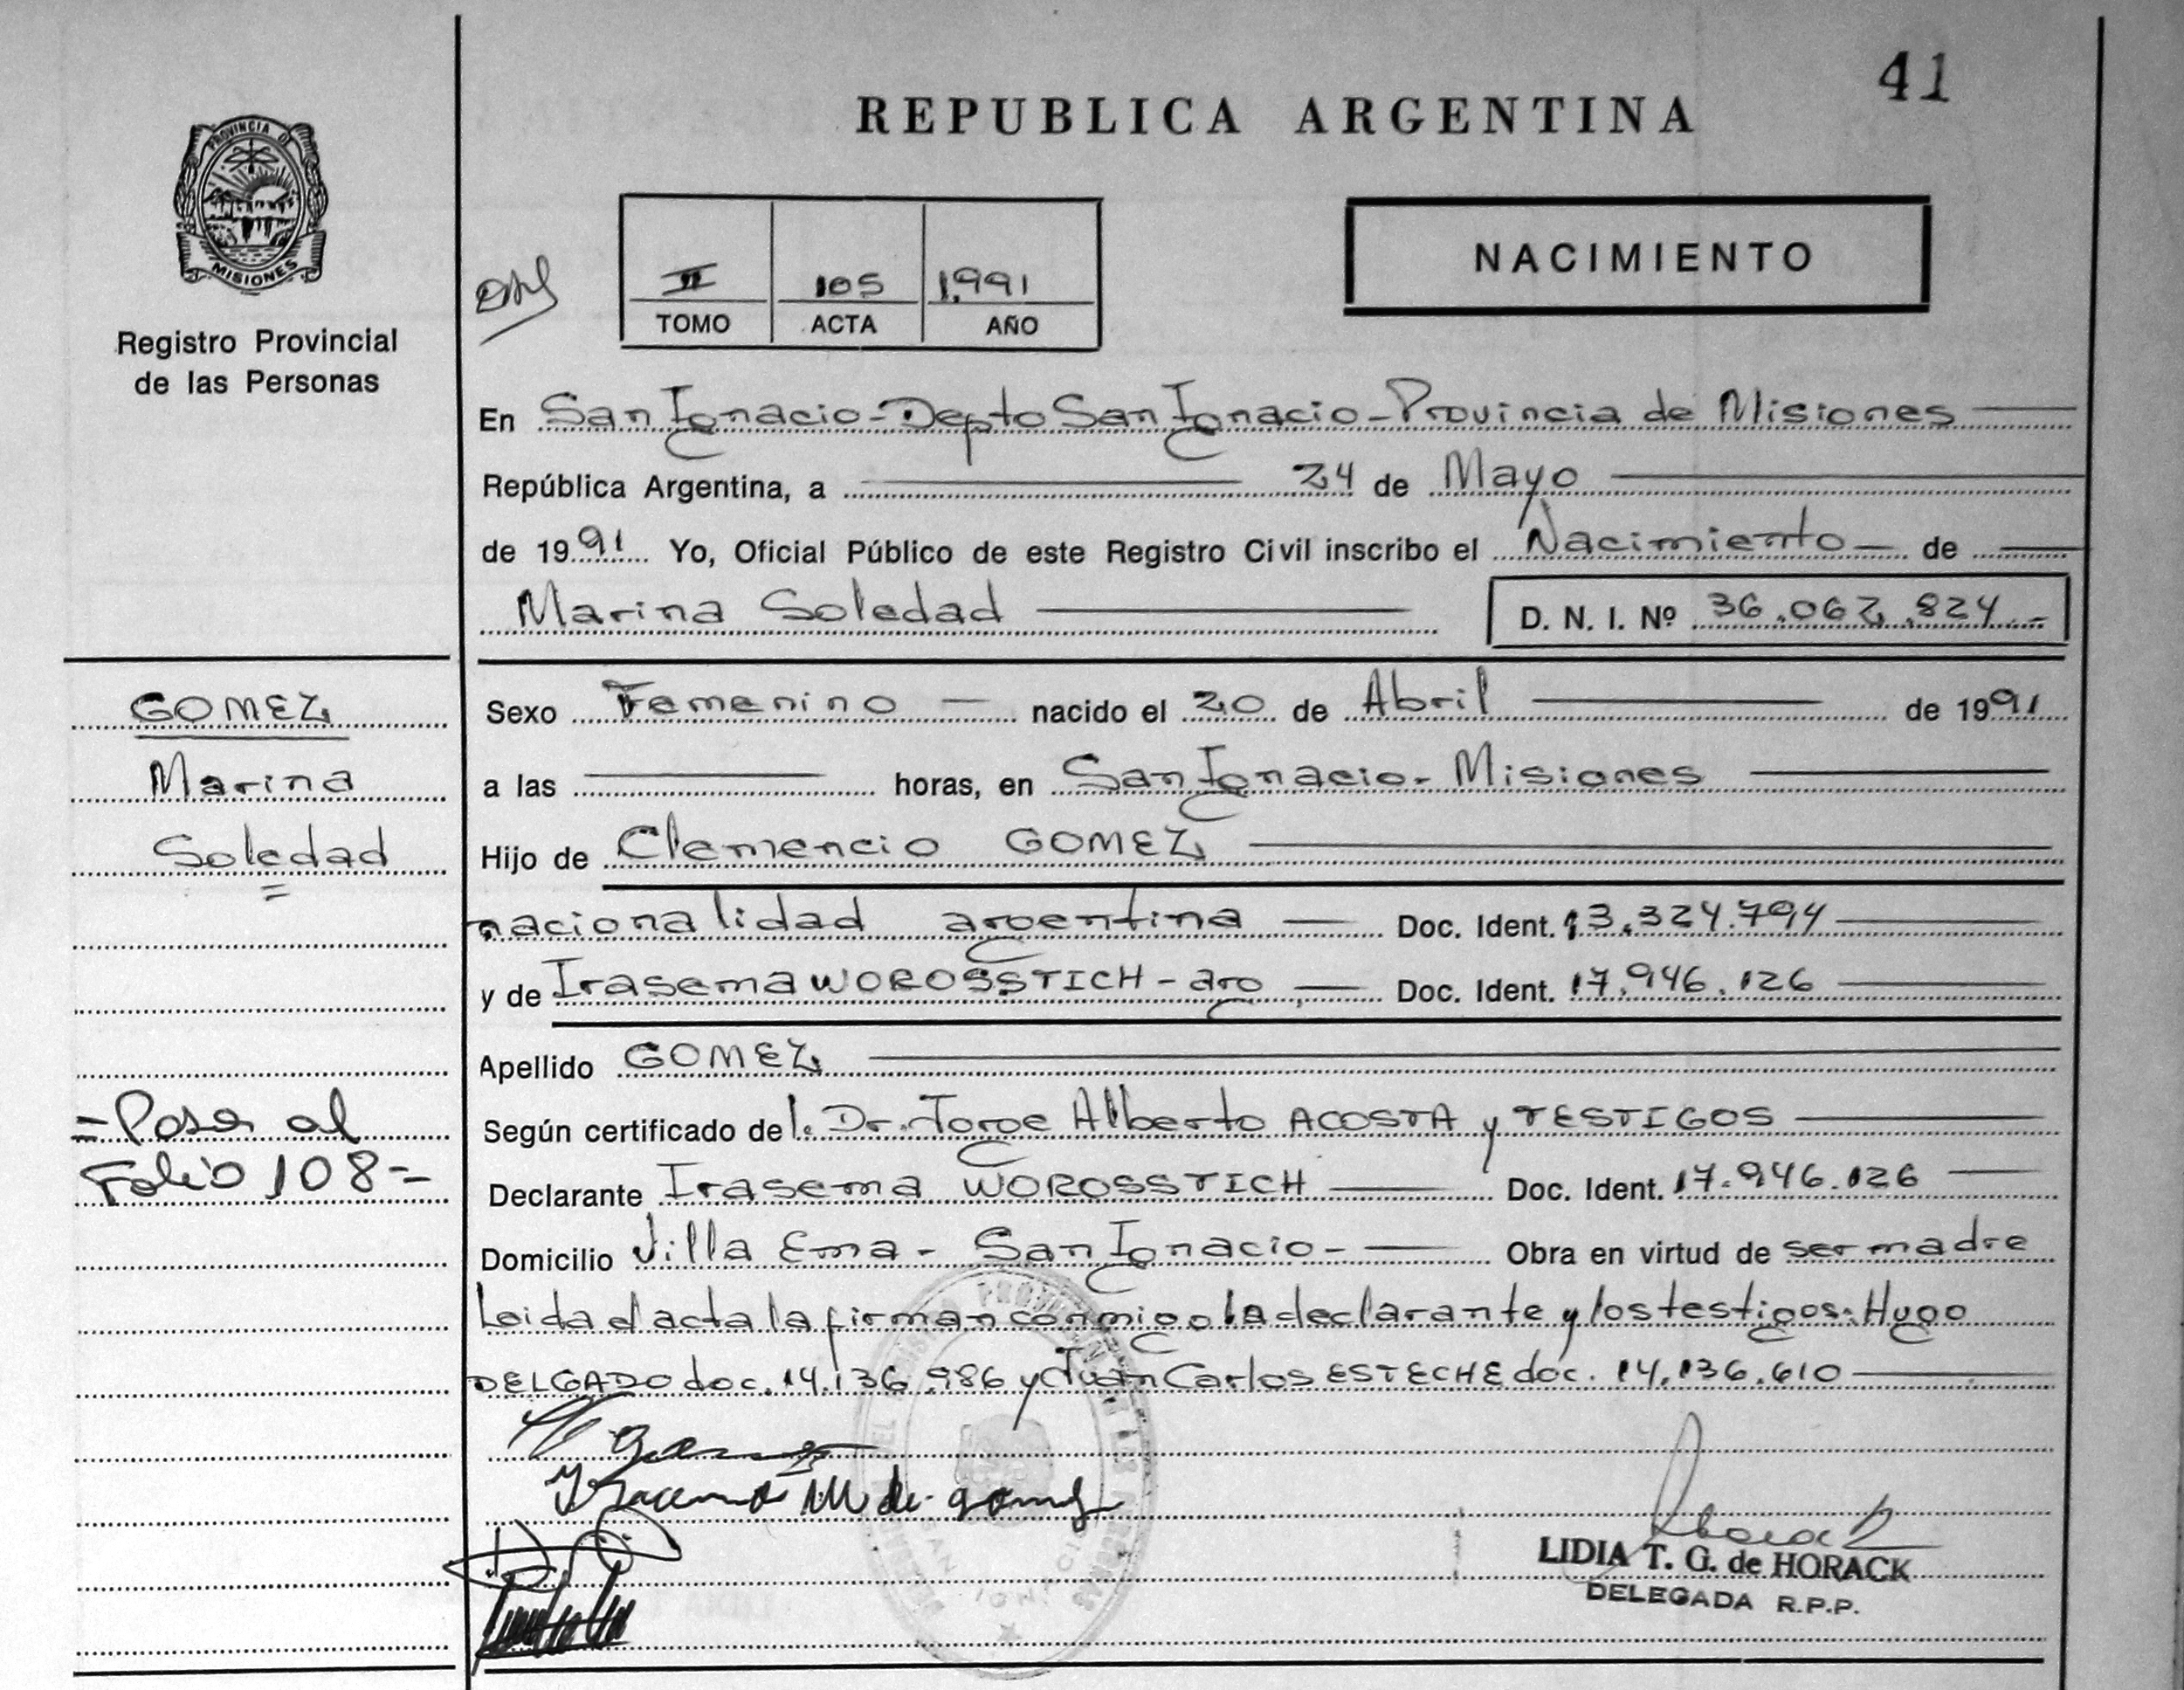 41
REPUBLICA ARGENTINA
PROVINCIA DE
MISIONES
Registro Provincial
de las Personas
II 105 1.991
TOMO ACTA AÑO
NACIMIENTO
En San Ignacio - Depto San Ignacio - Provincia de Misiones
República Argentina, a 24 de Mayo
de 1991 Yo, Oficial Público de este Registro Civil inscribo el Nacimiento - de
Marina Soledad D. N. I. Nº 36.062.824.-
GOMEZ
Marina
Soledad
Sexo Femenino - nacido el 20 de Abril de 1991
a las horas, en San Ignacio - Misiones
Hijo de Clemencio GOMEZ
nacionalidad argentina - Doc. Ident. 13.324.794
y de Irasema WOROSSTICH - arg. - Doc. Ident. 17.946.126
Apellido GOMEZ
Según certificado del. Dr. Jorge Alberto ACOSTA y TESTIGOS
=Pasa al
Folio 108=
Declarante Irasema WOROSSTICH Doc. Ident. 17.946.126
Domicilio Villa Ema - San Ignacio - Obra en virtud de ser madre
Leida el acta la firman conmigo la declarante y los testigos: Hugo
DELGADO doc. 14.136.986 y Juan Carlos ESTECHE doc. 14.136.610
de gomez
LIDIA T. G. de HORACK
DELEGADA R.P.P.